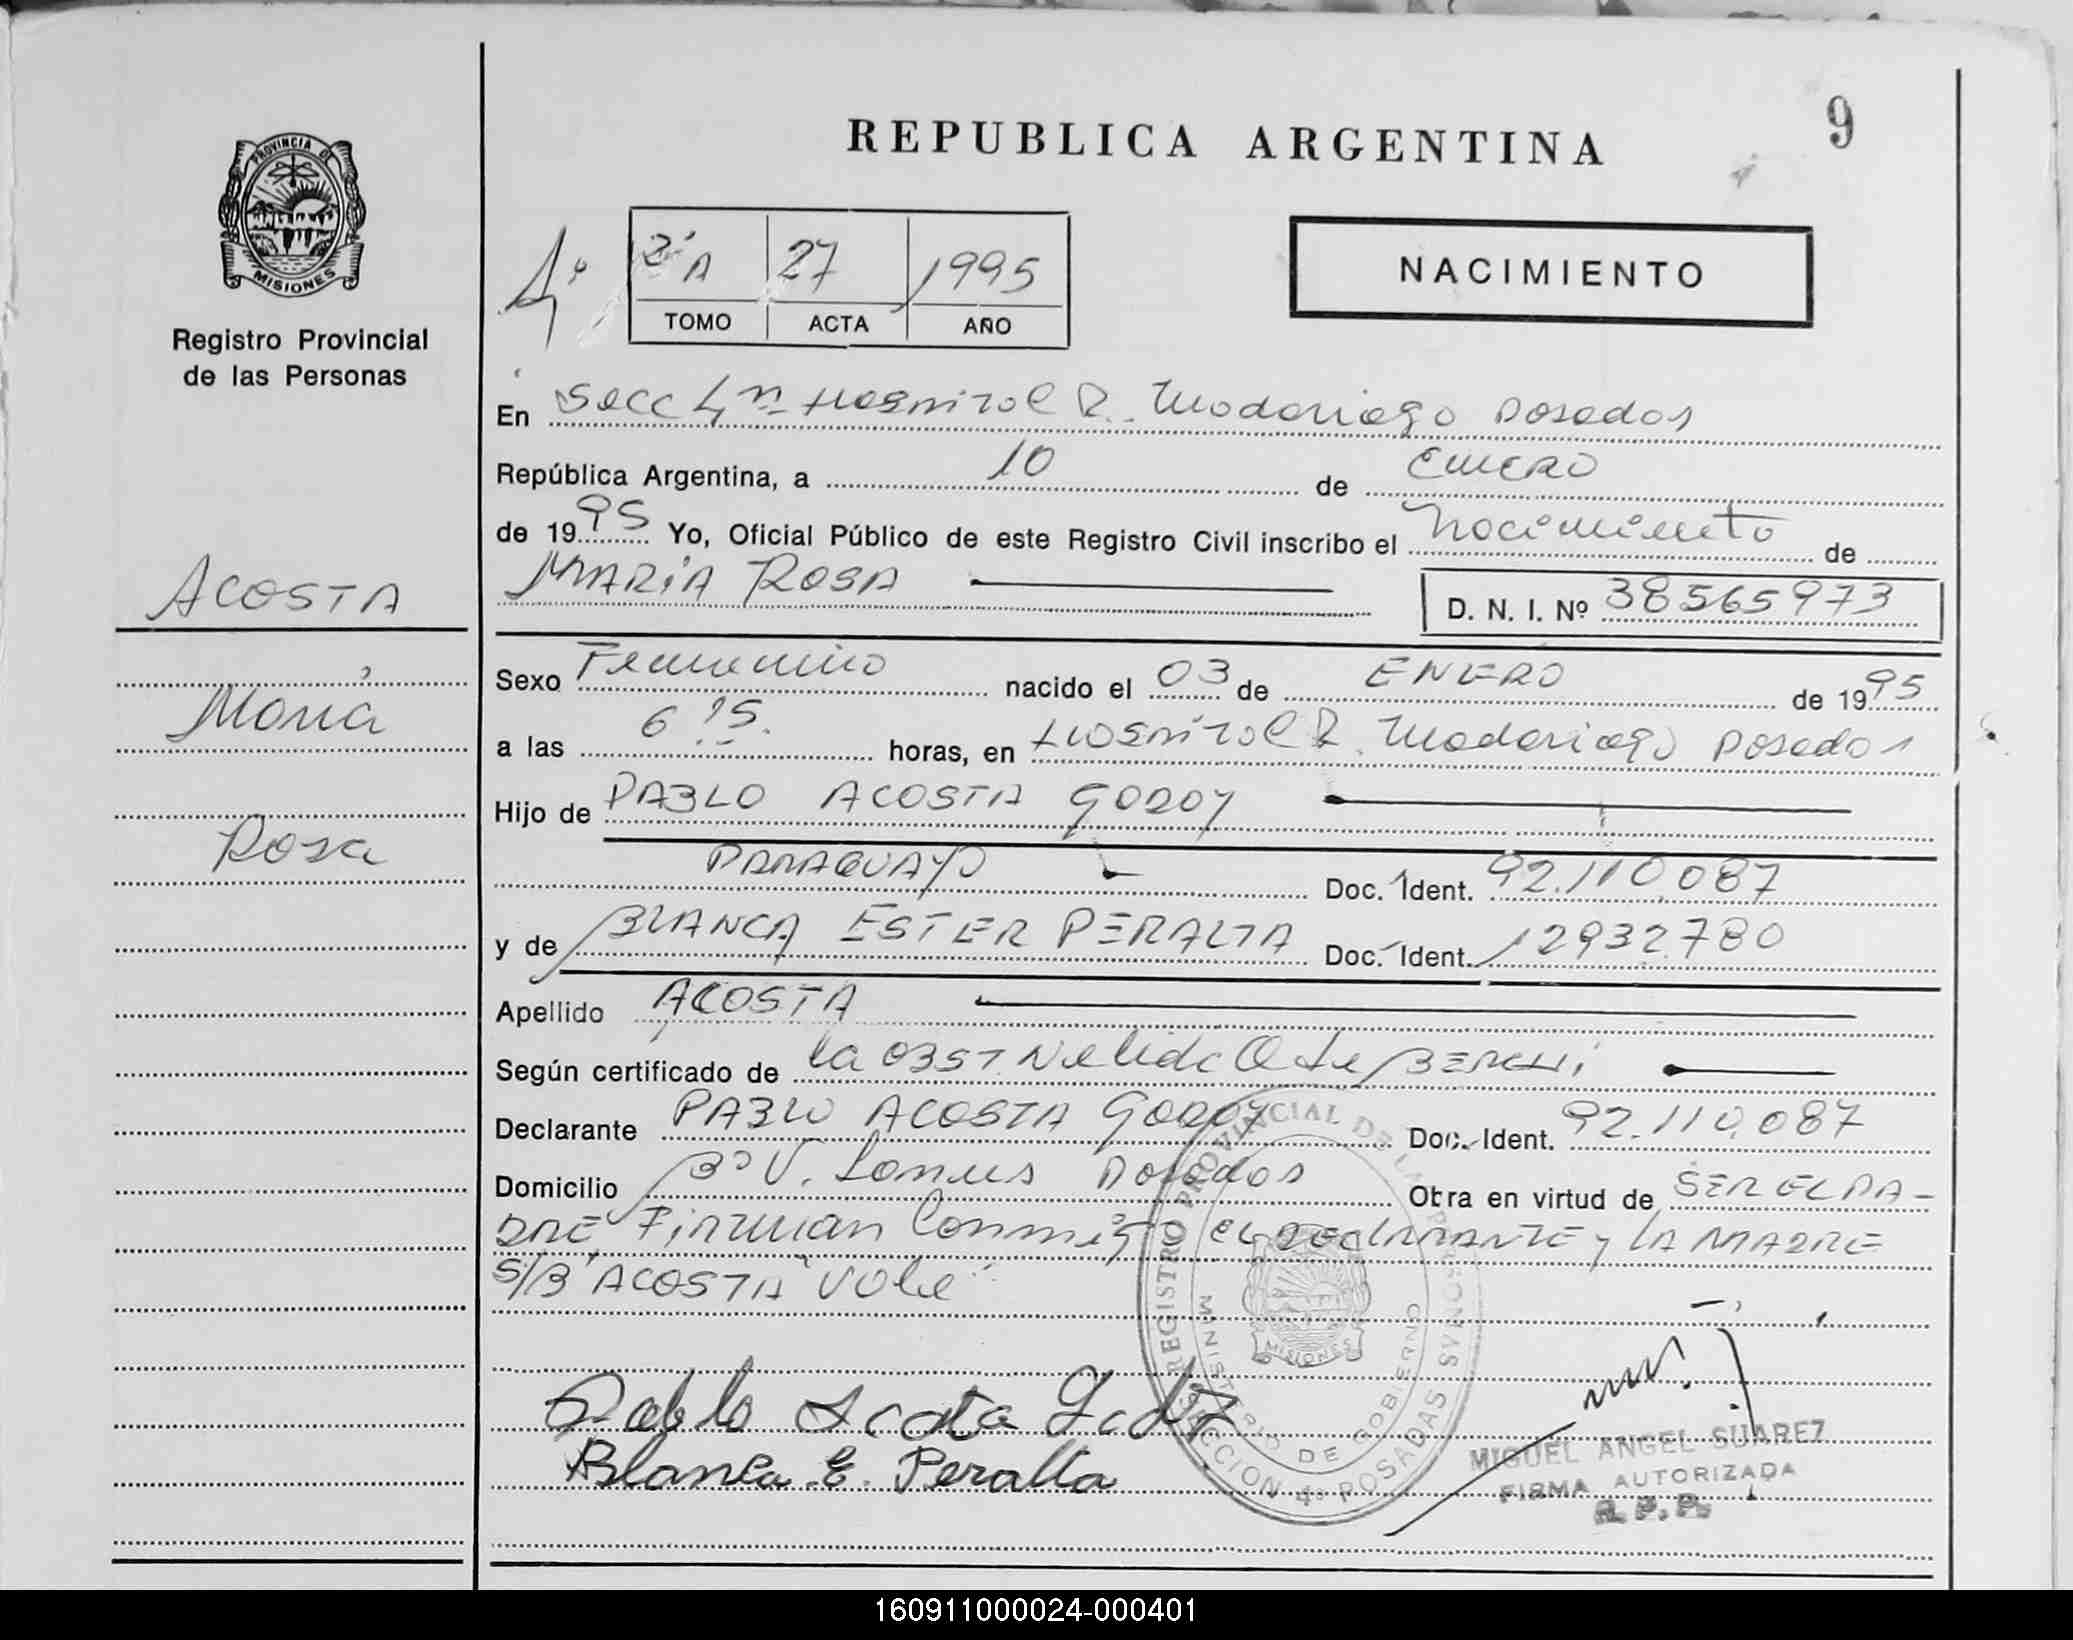 REPUBLICA ARGENTINA
9
PROVINCIA DE
MISIONES
Registro Provincial
de las Personas
4º
2º A 27 1995
TOMO ACTA AÑO
NACIMIENTO
En Secc 4ª Hospital R. Madariaga Posadas
República Argentina, a 10 de ENERO
de 1995 Yo, Oficial Público de este Registro Civil inscribo el Nacimiento de
MARIA ROSA
D. N. I. Nº 38565973
ACOSTA
María
Rosa
Sexo Femenino nacido el 03 de ENERO de 1995
a las 6 15 horas, en Hospital R. Madariaga Posadas
Hijo de PABLO ACOSTA GODOY
PARAGUAYO Doc. Ident. 92.110.087
y de BLANCA ESTER PERALTA Doc. Ident. 12932780
Apellido ACOSTA
Según certificado de la OBST Nelida
Declarante PABLO ACOSTA GODOY Doc. Ident. 92.110.087
Domicilio Bº V. Lanus Posadas Obra en virtud de SER EL PA-
DRE, Firman Conmigo EL DECLARANTE y LA MADRE
S/B "ACOSTA" Vale
Pablo Acosta Godoy
Blanca E. Peralta
REGISTRO PROVINCIAL DE LAS PERSONAS
MINISTERIO DE GOBIERNO
MISIONES
SECCION 4º POSADAS
MIGUEL ANGEL SUAREZ
FIRMA AUTORIZADA
R. P. P.
160911000024-000401